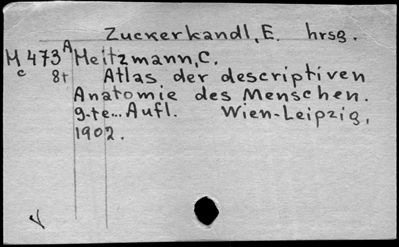 Zuckerkandl, E. hrsg.
M 473 A Meitzmann, C.
c 8t Atlas der descriptiven
Anatomie des Menschen.
9-te... Aufl. Wien-Leipzig,
1902.